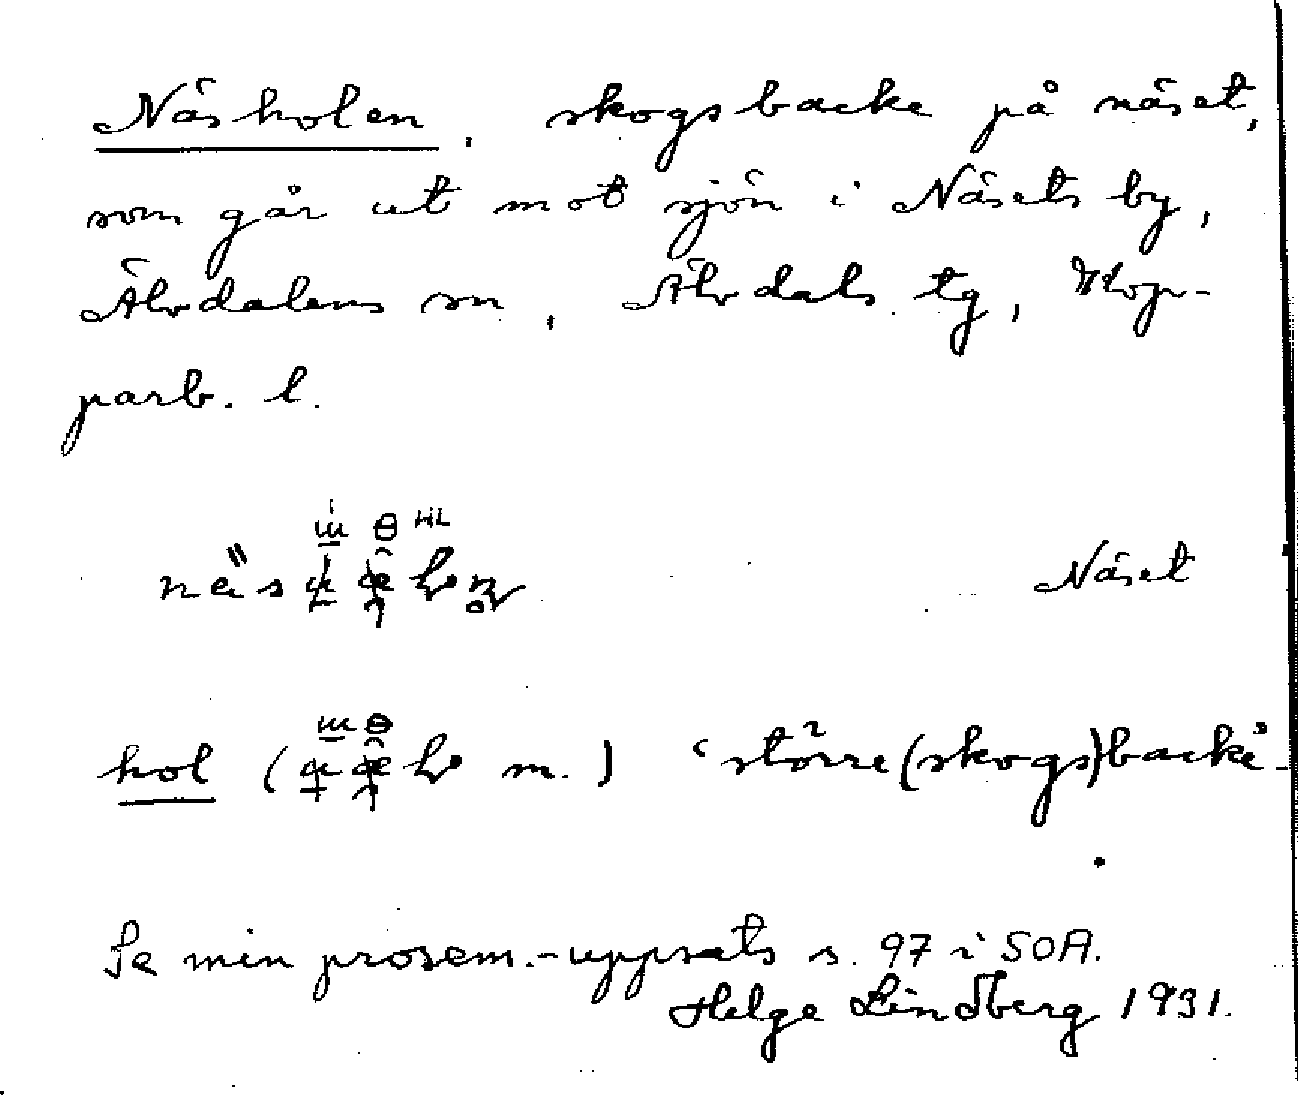 Näsholen, skogsbacke på näset,
som går ut mot sjön i Näsets by,
Älvdalens sn, Älvdals tg, Kop-
parb. l.
Näset
hol ( m.) 'större (skogs)backe'
Se min prosem.-uppsats s. 97 i SOA.
Helge Lindberg 1931.